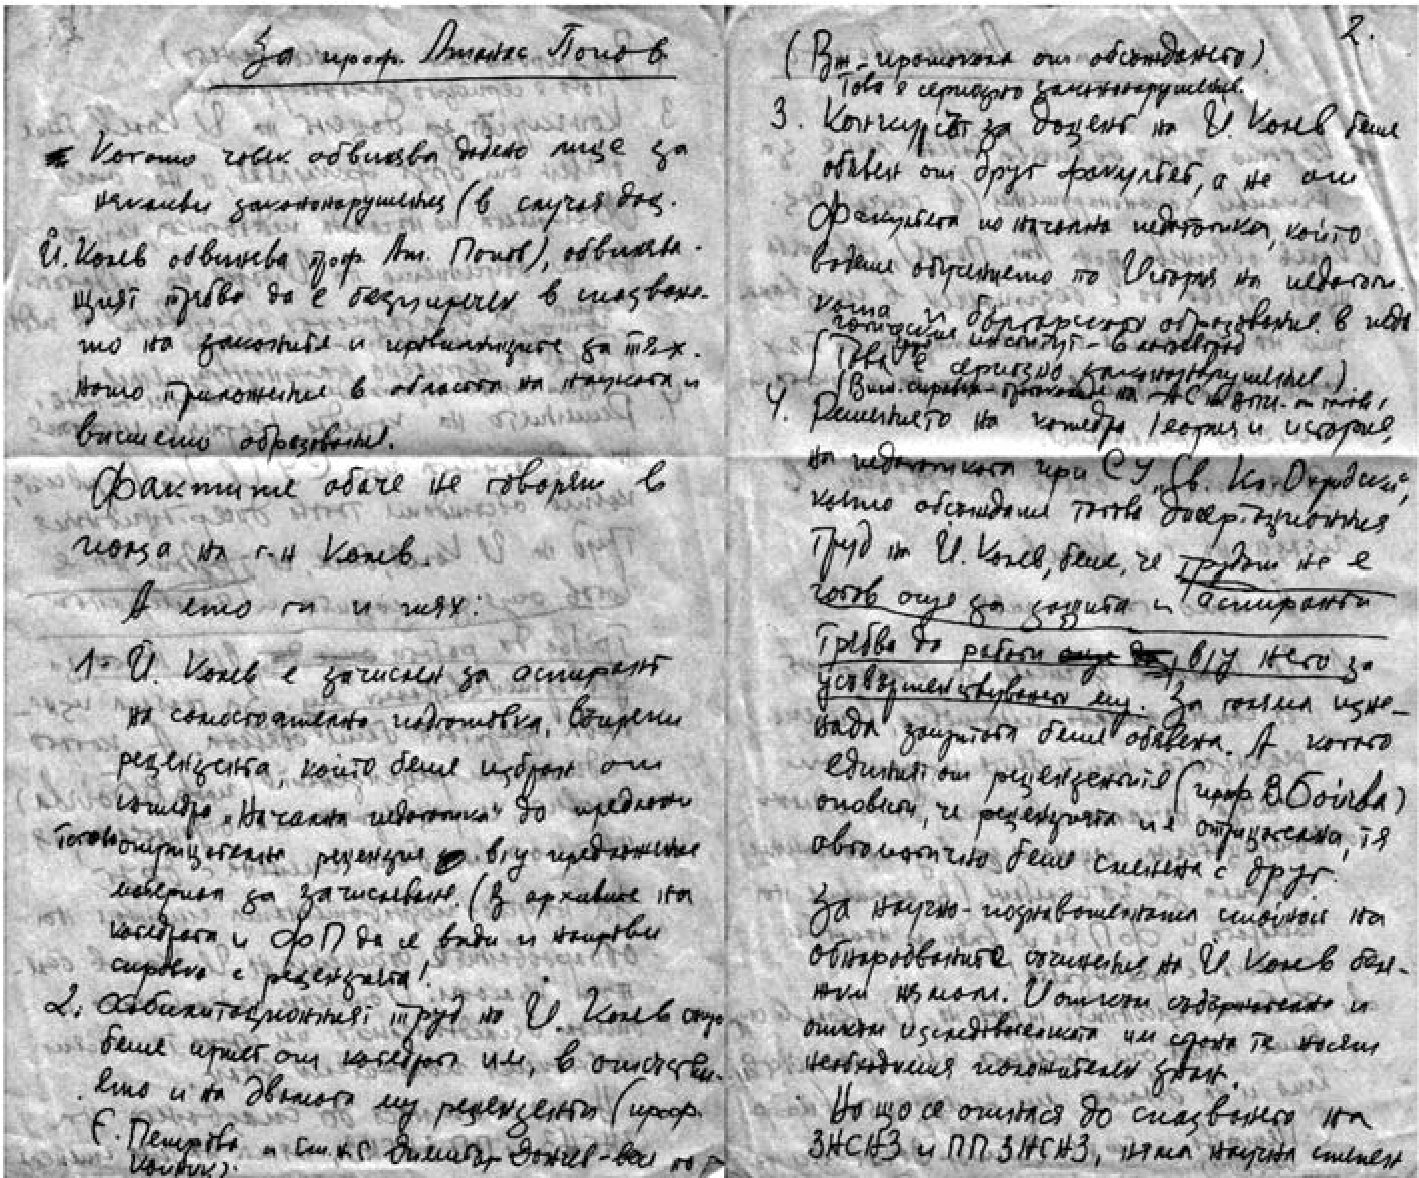 За проф. Атанас Попов
Когато човек обвинява дадено лице за
някакви законнонарушения (в случая доц.
Й. Колев обвинява проф. Ат. Попов), обвинява-
щият трябва да е безупречен в спазване-
то на законите и правилниците за тях-
ното приложение в областта на науката и
висшето образование.
Фактите обаче не говорят в
полза на г-н Колев.
А ето ги и тях:
1. Й. Колев е зачислен за аспирант
на самостоятелна подготовка, въпреки
рецензента, който беше избран от
катедра "Начална педагогика" да предложи
отрицателна рецензия в/у предложения
материал за зачисляване. (В архивите на
катедрата и ФП да се види и направи
справка с рецензията!
2. Хабилитационният труд на Й. Колев също
беше приет от катедрата им, в отсъстви-
ето и на двамата му рецензенти (проф.
Е. Петрова и Димитър
2.
(Вж. протокола от обсъждането).
Това е сериозно законнонарушение.
3. Конкурсът за доцент на Й. Колев беше
обявен от друг факултет, а не от
Факултета по начална педагогика, който
водеше обучението по История на педагоги-
ката и българското образование в педа
гогическия институт -
(Това е сериозно законнонарушение)
4. Решението на катедра Теория и история
на педагогиката при СУ "Св. Кл. Охридски",
която обсъждаше готовия дисертационния
труд на Й. Колев, беше, че трудът не е
готов още за защита и аспирантът
трябва да работи в/у него за
усъвършенстването му. За голяма изне-
нада защитата беше обявена. А когато
единият от рецензентите (проф. В. Бойчева)
оповести, че рецензията ѝ е отрицателна, тя
автоматично беше сменена с друг.
За научно-познавателната стойност на
обнародваните съчинения на Й. Колев беле-
жки нямам. И откъм съдържателно и
откъм изследователската им страна те носят
необходимия положителен знак.
Но що се отнася до спазването на
ЗНСНЗ и ППЗНСНЗ, няма научна степен